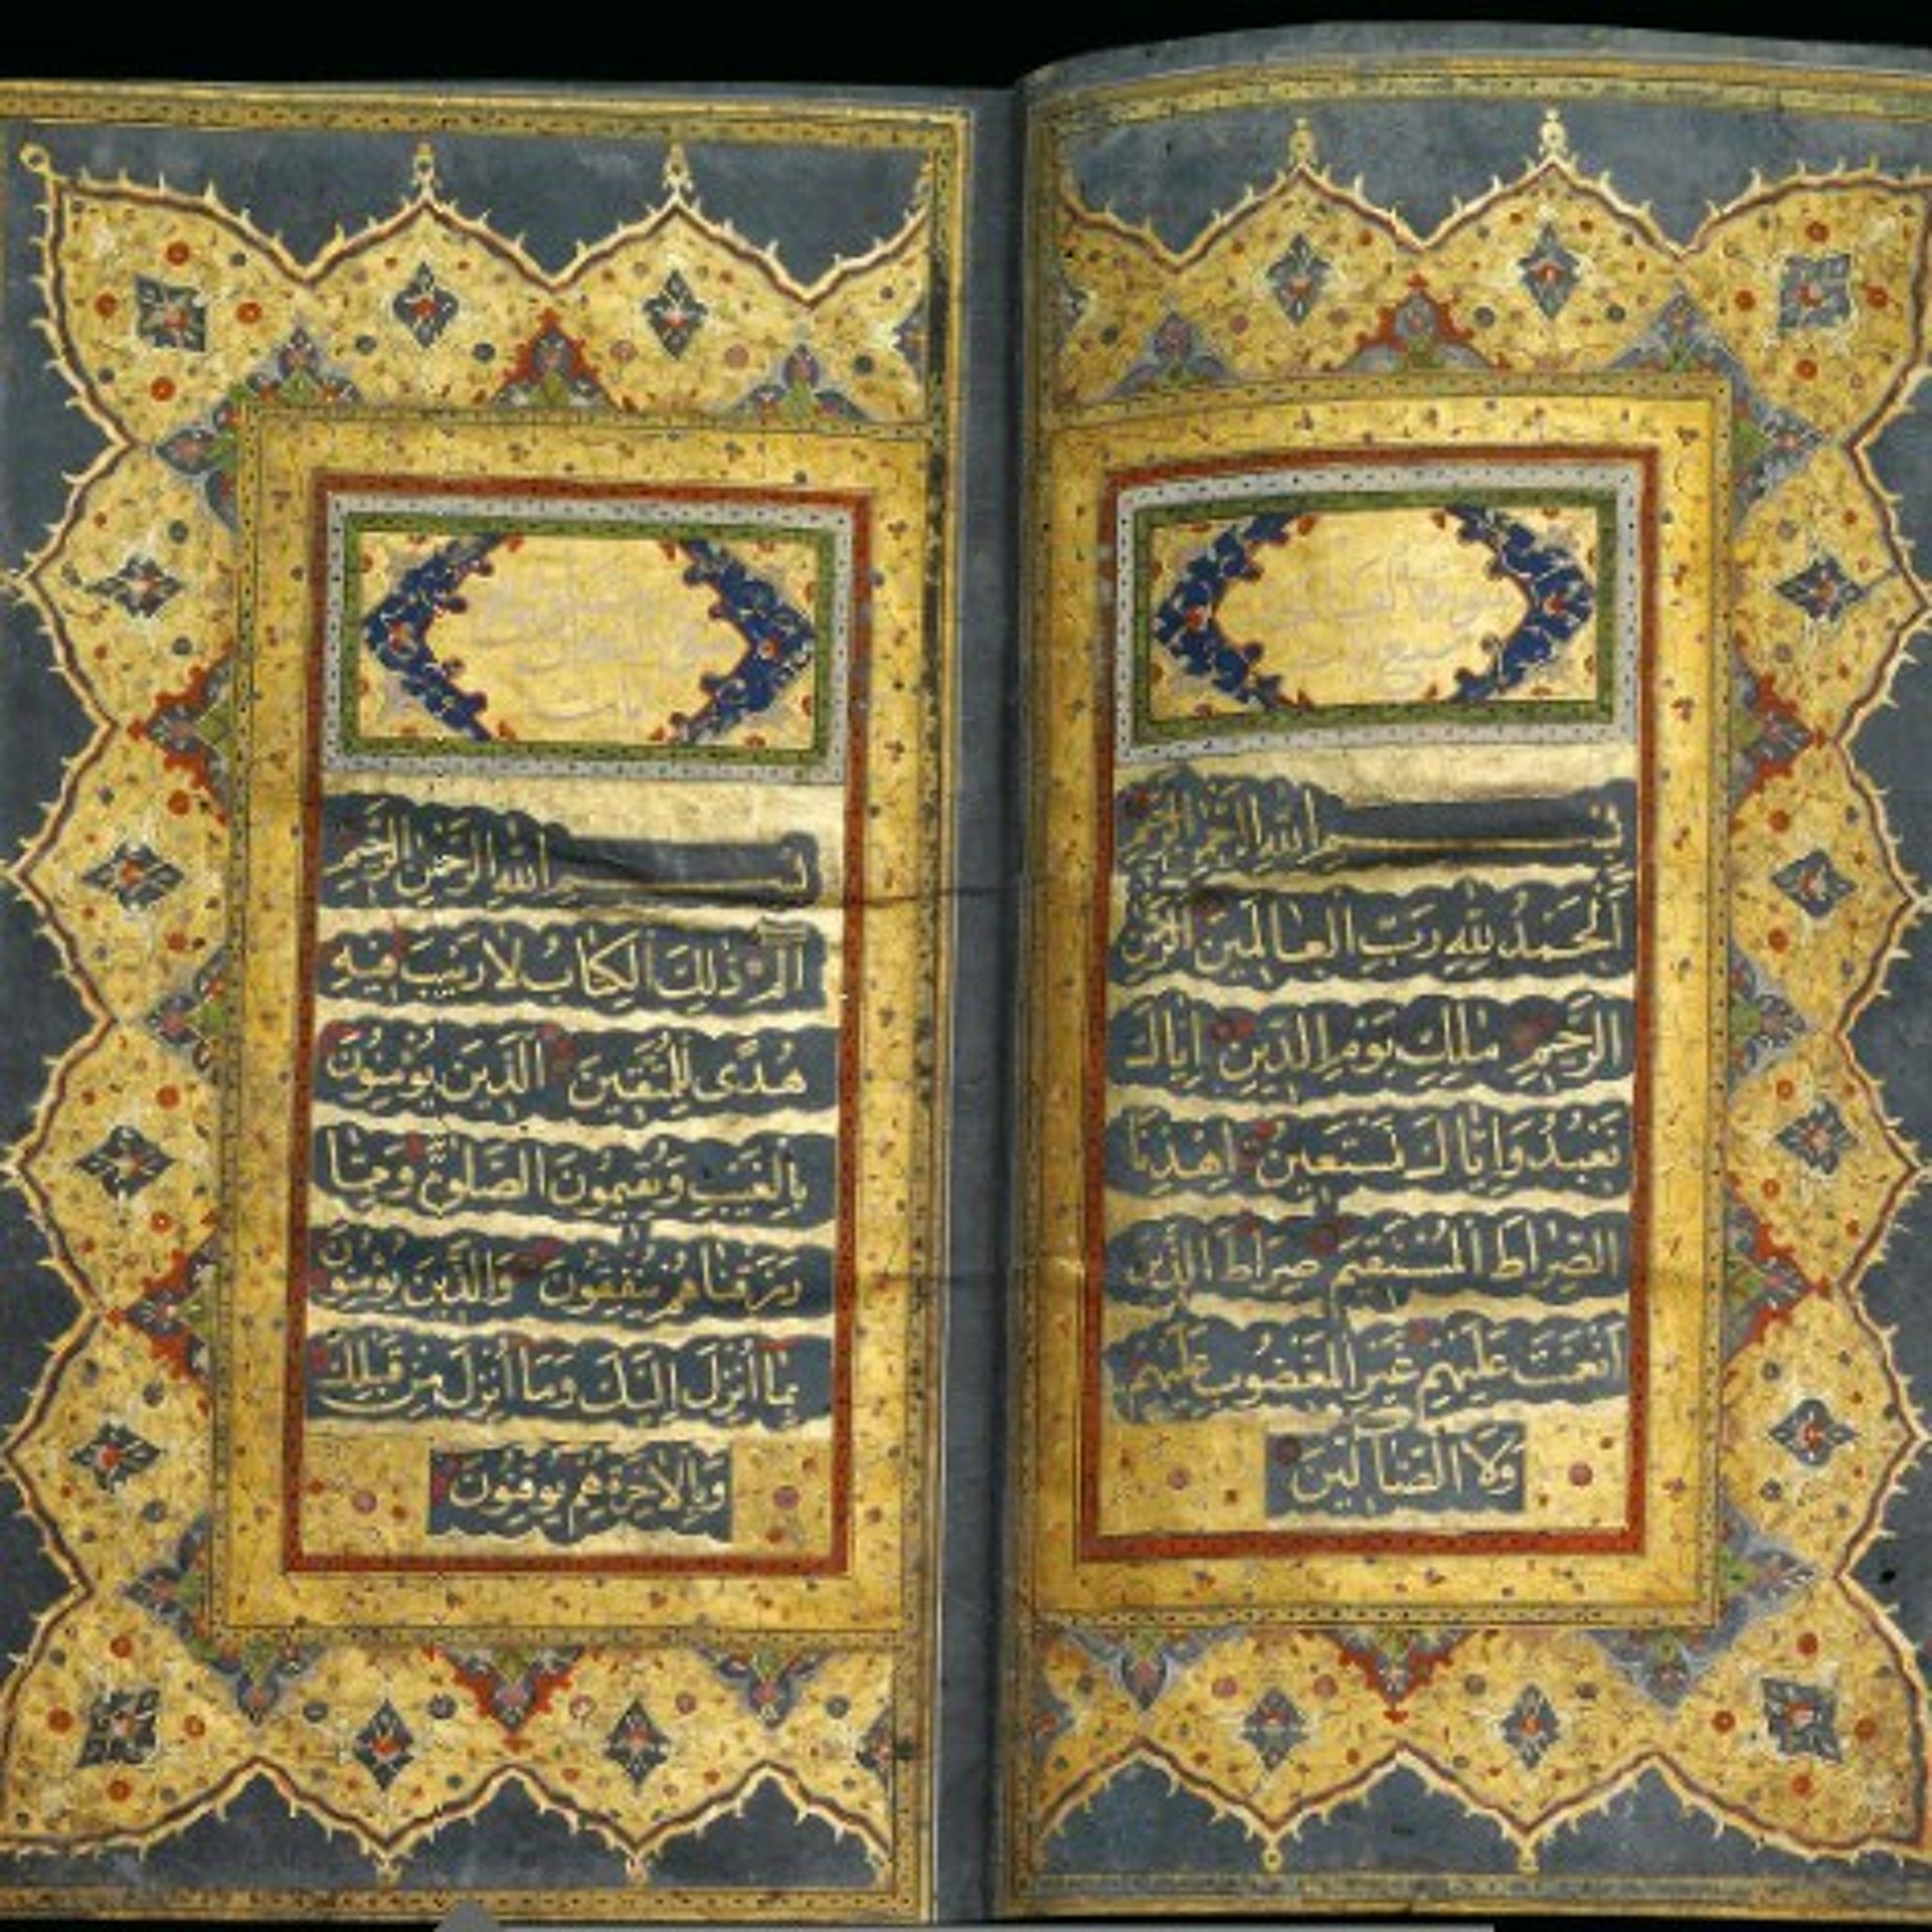 سورة الفاتحة
سبع
بسم الله الرحمن الرحيم
اَلْحَمْدُ لِلّٰهِ رَبِّ الْعَالَمِينَ الرَّحْمٰنِ
الرَّحِيمِ مٰلِكِ يَوْمِ الدِّينِ اِيَّاكَ
نَعْبُدُ وَاِيَّاكَ نَسْتَعِينُ اِهْدِنَا
الصِّرَاطَ الْمُسْتَقِيمَ صِرَاطَ الَّذِينَ
اَنْعَمْتَ عَلَيْهِمْ غَيْرِ الْمَغْضُوبِ عَلَيْهِمْ
وَلَا الضَّالِّينَ
بسم الله الرحمن الرحيم
الٓمٓ ذٰلِكَ الْكِتَابُ لَا رَيْبَ فِيهِ
هُدًى لِلْمُتَّقِينَ الَّذِينَ يُؤْمِنُونَ
بِالْغَيْبِ وَيُقِيمُونَ الصَّلٰوةَ وَمِمَّا
رَزَقْنَاهُمْ يُنْفِقُونَ وَالَّذِينَ يُؤْمِنُونَ
بِمَا اُنْزِلَ اِلَيْكَ وَمَا اُنْزِلَ مِنْ قَبْلِكَ
وَبِالْاٰخِرَةِ هُمْ يُوقِنُونَ